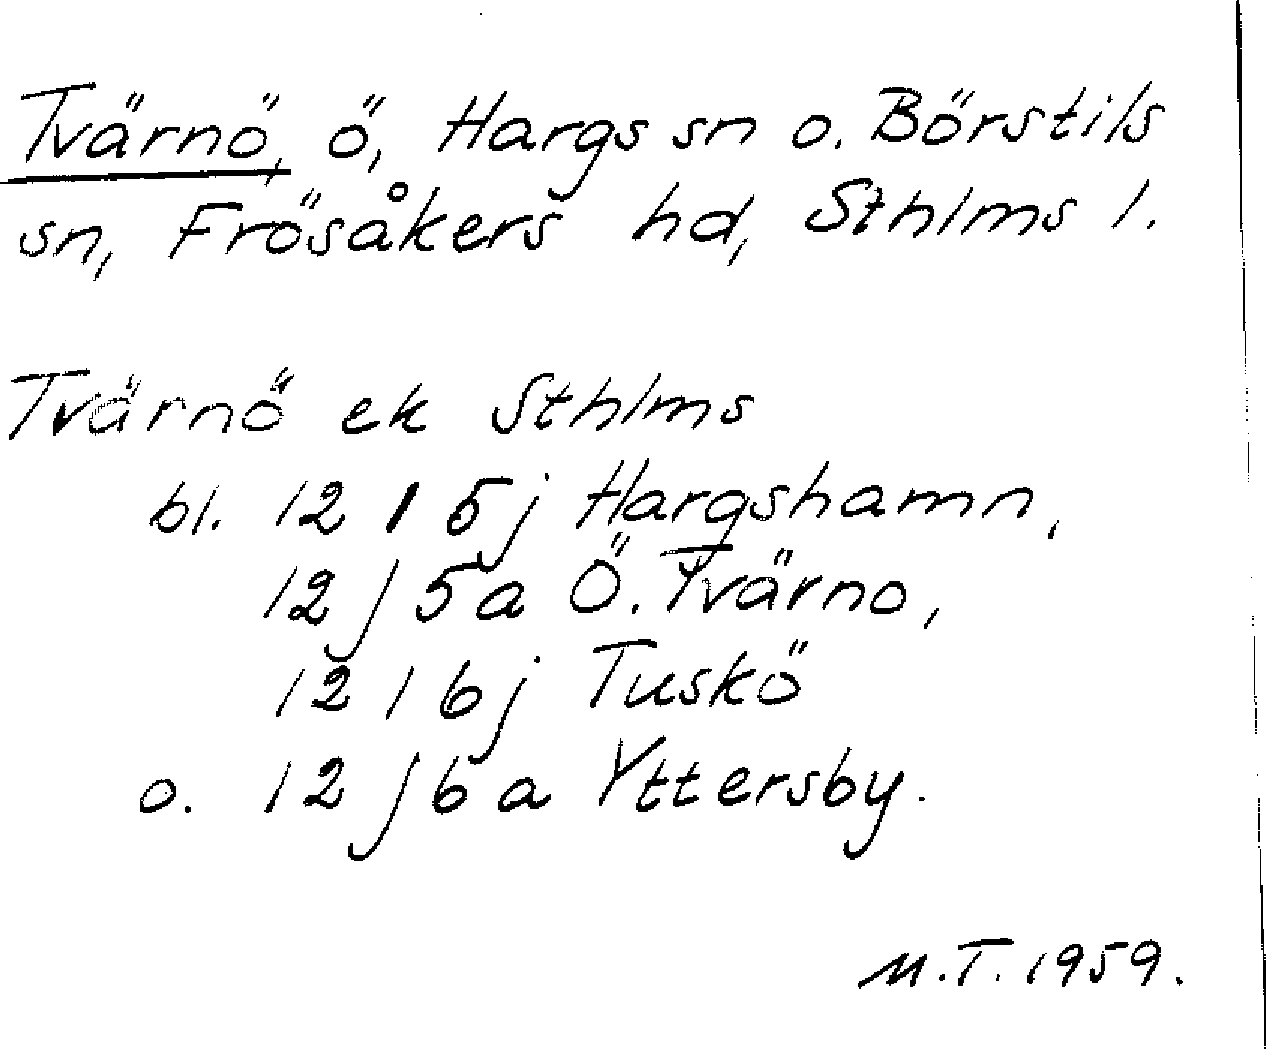 Tvärnö, ö, Hargs sn o. Börstils
sn, Frösåkers hd, Sthlms l.
Tvärnö ek Sthlms
bl. 12 I 5j Hargshamn,
12 J 5a Ö. Tvärno,
12 I 6j Tuskö
o. 12 J 6a Yttersby.
M.T. 1959.